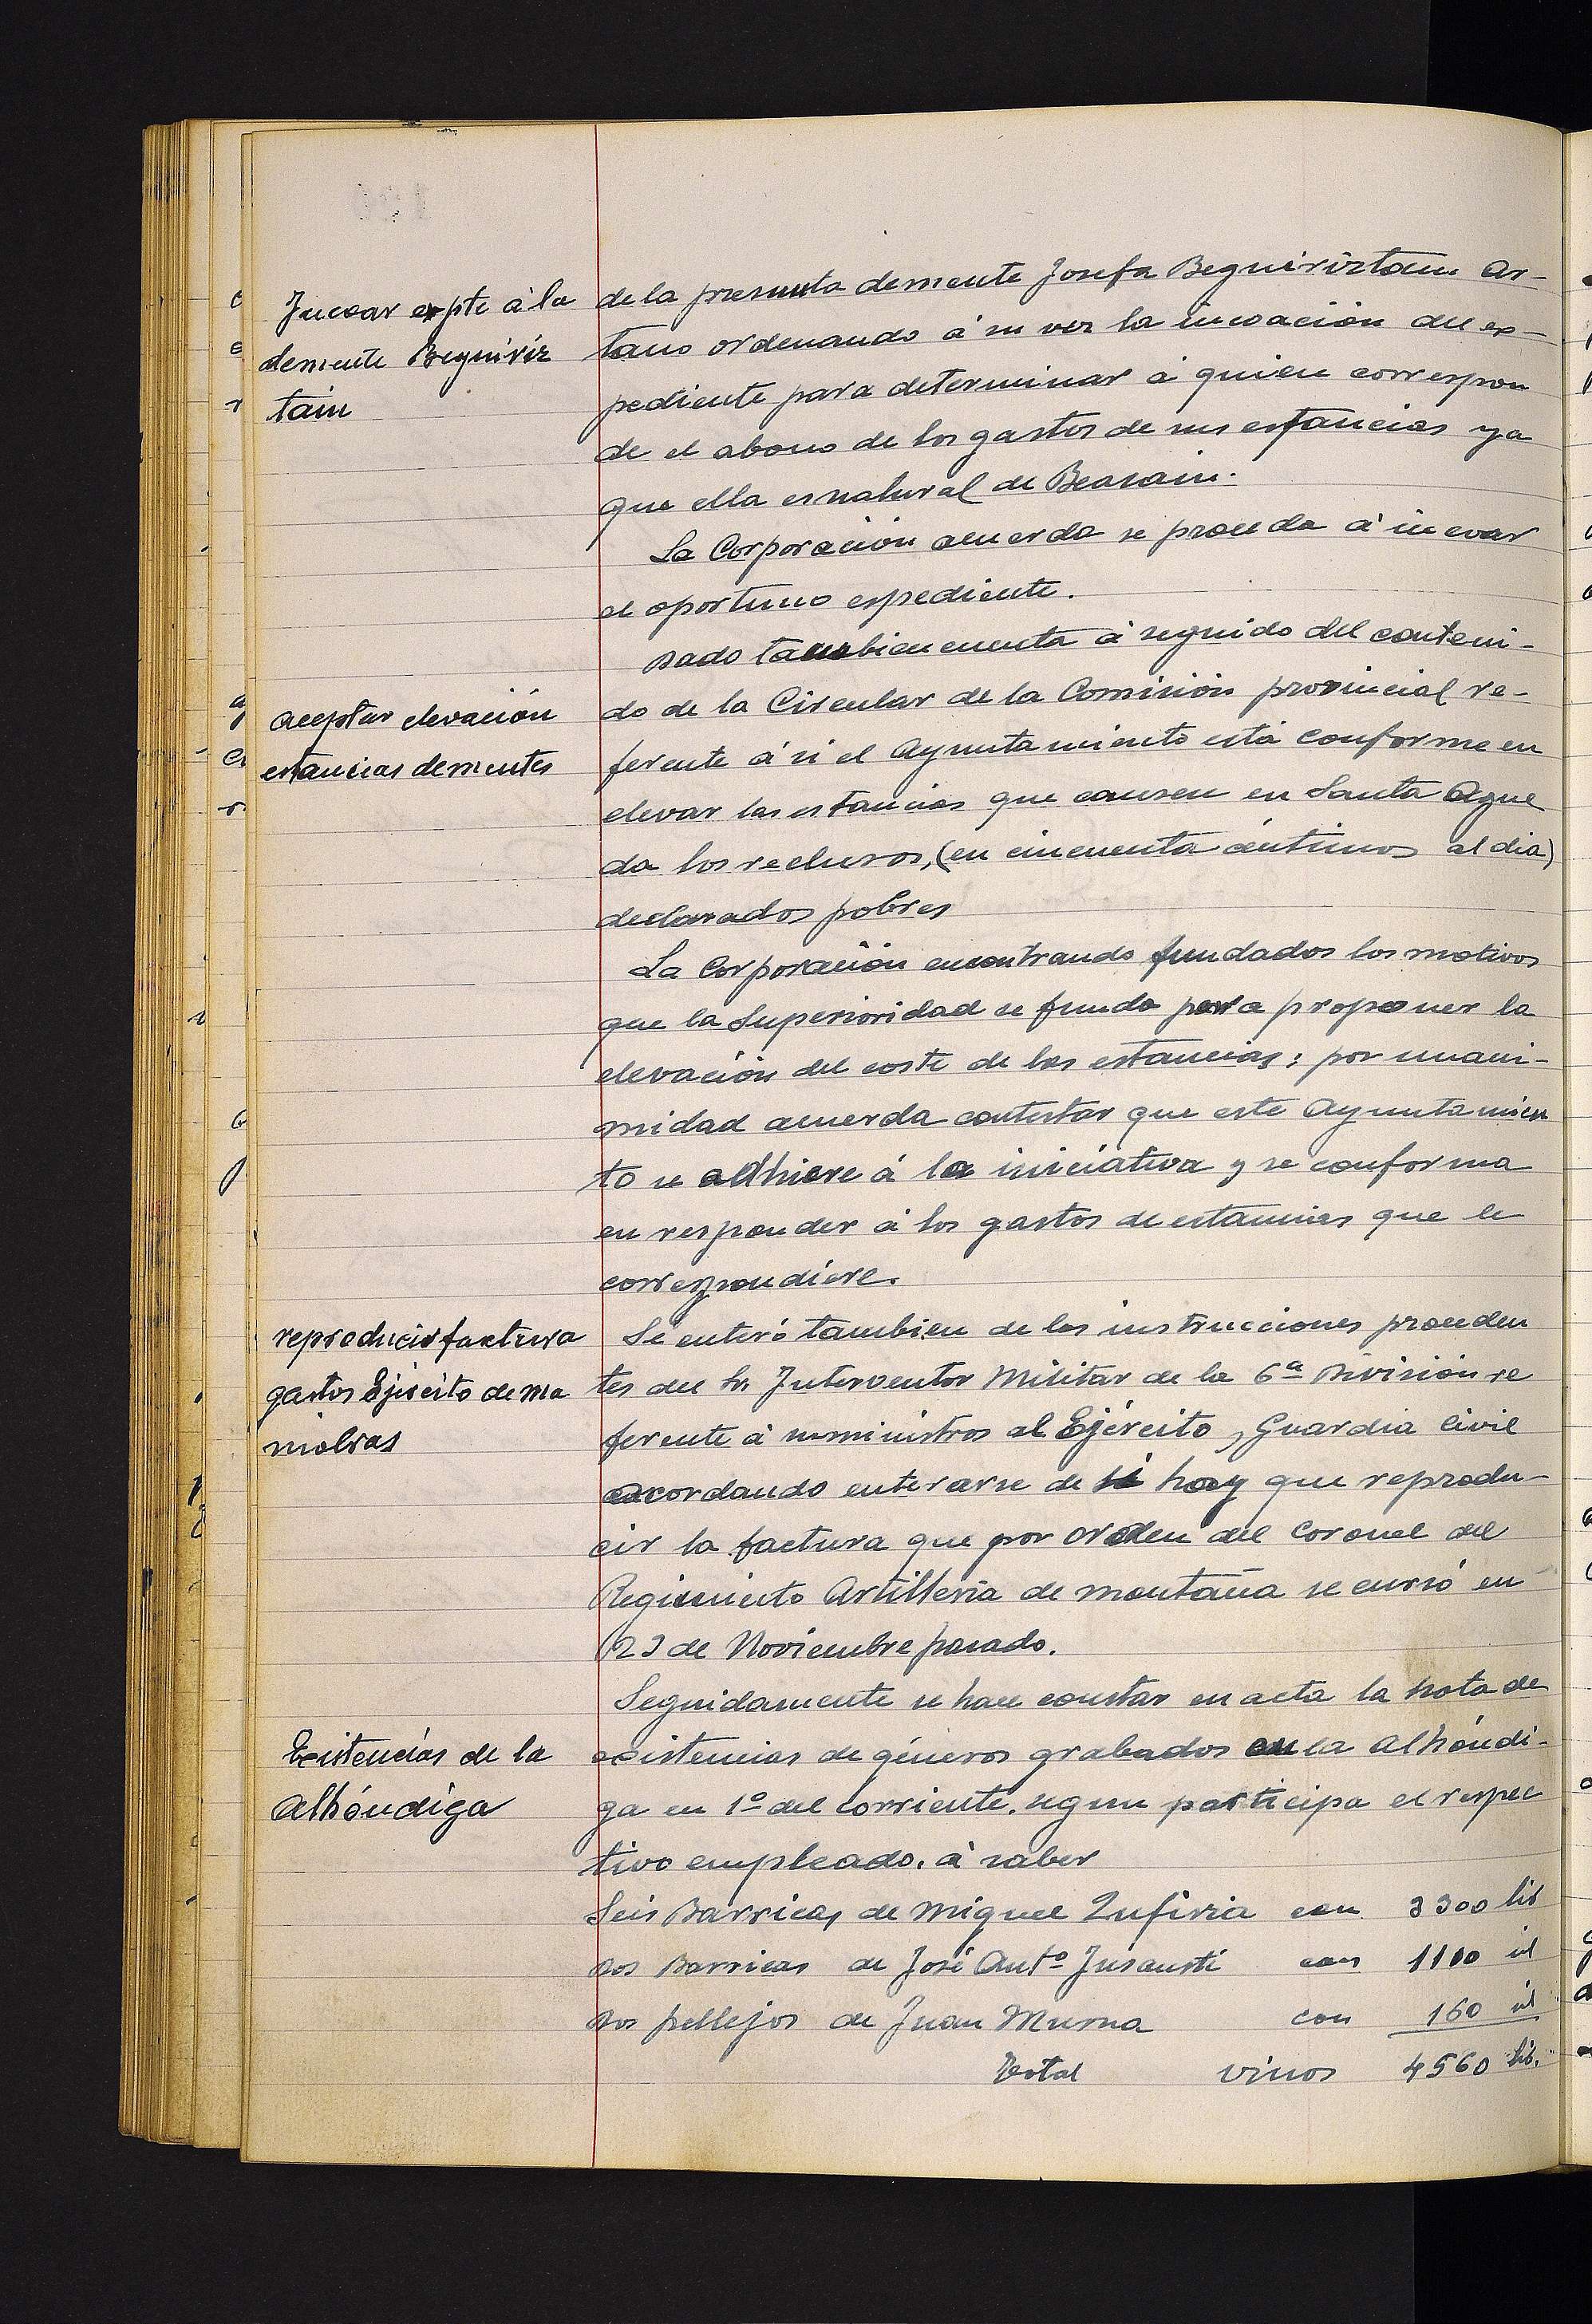 Incoar expte á la
demente Beguiriz
tain
de la presunta demente Josefa Beguiriztain Ar-
tano ordenando á su vez la incoación del ex-
pediente para determinar á quien correspon
de el abono de los gastos de sus estancias ya
que ella es natural de Beasain.
La Corporación acuerda se proceda á incoar
el oportuno espediente.
Dado tambien cuenta á seguido del conteni-
Aceptar elevación
estancias dementes
do de la Circular de la Comisión provincial re-
ferente á si el Ayuntamiento está conforme en
elevar las estancias que causen en Santa Ague
da los reclusos, (en cincuenta céntimos al dia)
declarados pobres
La Corporación encontrando fundados los motivos
que la Superioridad se funda para proponer la
elevación del coste de las estancias: por unani-
midad acuerda contestar que este Ayuntamien
to se adhiere á la iniciativa y se conforma
en responder á los gastos de estancias que le
correspondiere.
reproducir factura
gastos Ejército de ma
niobras
Se enteró tambien de las instrucciones proceden
tes del Sr. Interventor Militar de la 6ª División re
ferente á suministros al Ejército, Guardia Civil
acordando enterarse de si hay que reprodu-
cir la factura que por orden del Coronel del
Regimiento Artilleria de montaña se cursó en
23 de Noviembre pasado.
Seguidamente se hace constar en acta la nota de
Existencias de la
Alhóndiga
existencias de géneros grabados en la Alhóndi-
ga en 1º del corriente. segun participa el respec
tivo empleado. á saber
Seis Barricas de Miguel Zufiria con 3300 lit
Dos Barricas de José Antº Insausti con 1100 id
Dos pellejos de Juan Murua con 160 id
Total vinos 4560 lit.